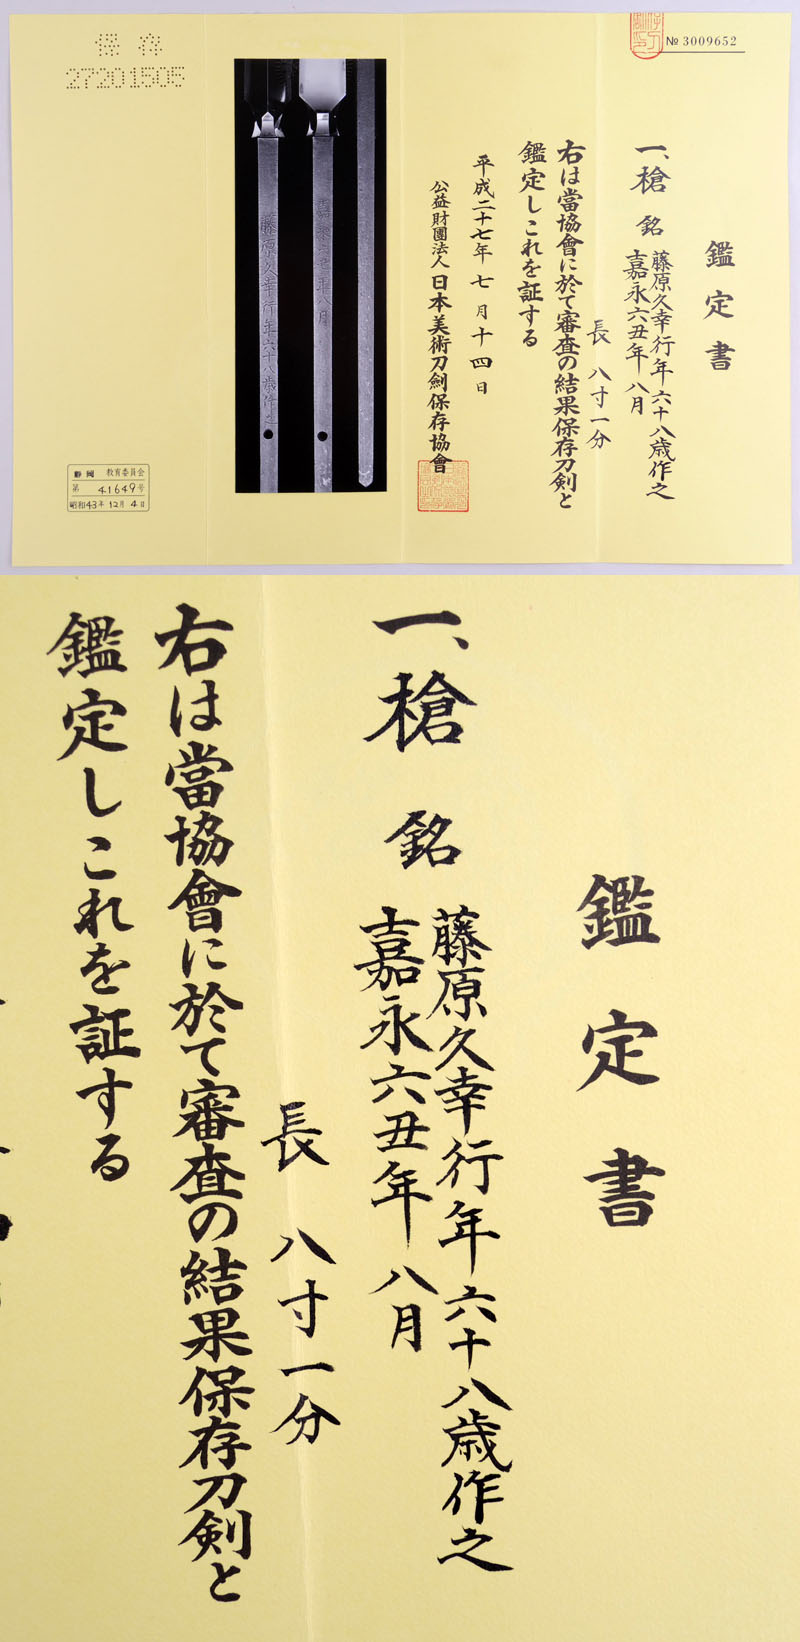 № 3009652
鑑定書
一、槍 銘 藤原久幸行年六十八歳作之
嘉永六丑年八月
長 八寸一分
右は當協會に於て審査の結果保存刀剣と
鑑定しこれを証する
平成二十七年 七月十四日
公益財團法人 日本美術刀劍保存協會
藤原久幸行年六十八歳作之
嘉永六丑年八月
保存
27201505
静岡 教育委員会
第 41649号
昭和43年12月4日
鑑定書
一、槍 銘 藤原久幸行年六十八歳作之
嘉永六丑年八月
長 八寸一分
右は當協會に於て審査の結果保存刀剣と
鑑定しこれを証する